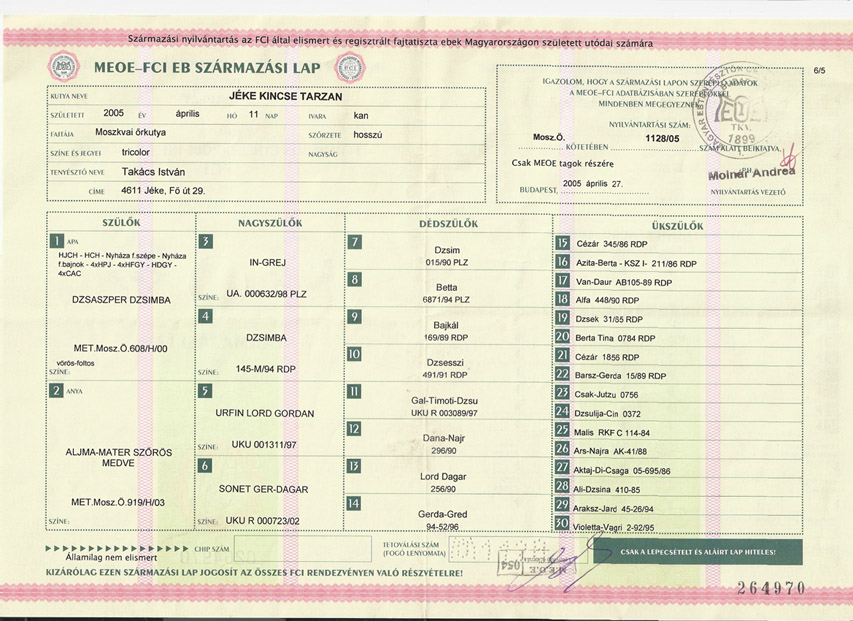 Származási nyilvántartás az FCI által elismert és regisztrált fajtatiszta ebek Magyarországon született utódai számára
MEOE–FCI EB SZÁRMAZÁSI LAP
FCI
6/5
KUTYA NEVE JÉKE KINCSE TARZAN
SZÜLETETT 2005 ÉV április HÓ 11 NAP IVARA kan
FAJTÁJA Moszkvai őrkutya SZŐRZETE hosszú
SZÍNE ÉS JEGYEI tricolor NAGYSÁG
TENYÉSZTŐ NEVE Takács István
CÍME 4611 Jéke, Fő út 29.
IGAZOLOM, HOGY A SZÁRMAZÁSI LAPON SZEREPLŐ ADATOK
A MEOE–FCI ADATBÁZISÁBAN SZEREPLŐKKEL
MINDENBEN MEGEGYEZNEK
NYILVÁNTARTÁSI SZÁM:
Mosz.Ő. 1128/05
KÖTETÉBEN SZÁM ALATT BEIKTATVA.
Csak MEOE tagok részére
BUDAPEST, 2005 április 27.
Molnár Andrea
NYILVÁNTARTÁS VEZETŐ
TKV.
1899
SZÜLŐK
1 APA
HJCH - HCH - Nyháza f.szépe - Nyháza
f.bajnok - 4xHPJ - 4xHFGY - HDGY -
4xCAC
DZSASZPER DZSIMBA
MET.Mosz.Ő.608/H/00
vörös-foltos
SZÍNE:
2 ANYA
ALJMA-MATER SZŐRÖS
MEDVE
MET.Mosz.Ő.919/H/03
SZÍNE:
NAGYSZÜLŐK
3
IN-GREJ
SZÍNE: UA. 000632/98 PLZ
4
DZSIMBA
SZÍNE: 145-M/94 RDP
5
URFIN LORD GORDAN
SZÍNE: UKU 001311/97
6
SONET GER-DAGAR
SZÍNE: UKU R 000723/02
DÉDSZÜLŐK
7
Dzsim
015/90 PLZ
8
Betta
6871/94 PLZ
9
Bajkál
169/89 RDP
10
Dzsesszi
491/91 RDP
11
Gal-Timoti-Dzsu
UKU R 003089/97
12
Dana-Najr
296/90
13
Lord Dagar
256/90
14
Gerda-Gred
94-52/96
ÜKSZÜLŐK
15 Cézár 345/86 RDP
16 Azita-Berta - KSZ I- 211/86 RDP
17 Van-Daur AB105-89 RDP
18 Alfa 448/90 RDP
19 Dzsek 31/85 RDP
20 Berta Tina 0784 RDP
21 Cézár 1856 RDP
22 Barsz-Gerda 15/89 RDP
23 Csak-Jutzu 0756
24 Dzsulija-Cin 0372
25 Malis RKF C 114-84
26 Ars-Najra AK-41/88
27 Aktaj-Di-Csaga 05-695/86
28 Ali-Dzsina 410-85
29 Araksz-Jard 45-26/94
30 Violetta-Vagri 2-92/95
Államilag nem elismert
CHIP SZÁM
TETOVÁLÁSI SZÁM
(FOGÓ LENYOMATA)
M.E.O.E.
054
CSAK A LEPECSÉTELT ÉS ALÁÍRT LAP HITELES!
KIZÁRÓLAG EZEN SZÁRMAZÁSI LAP JOGOSÍT AZ ÖSSZES FCI RENDEZVÉNYEN VALÓ RÉSZVÉTELRE!
264970